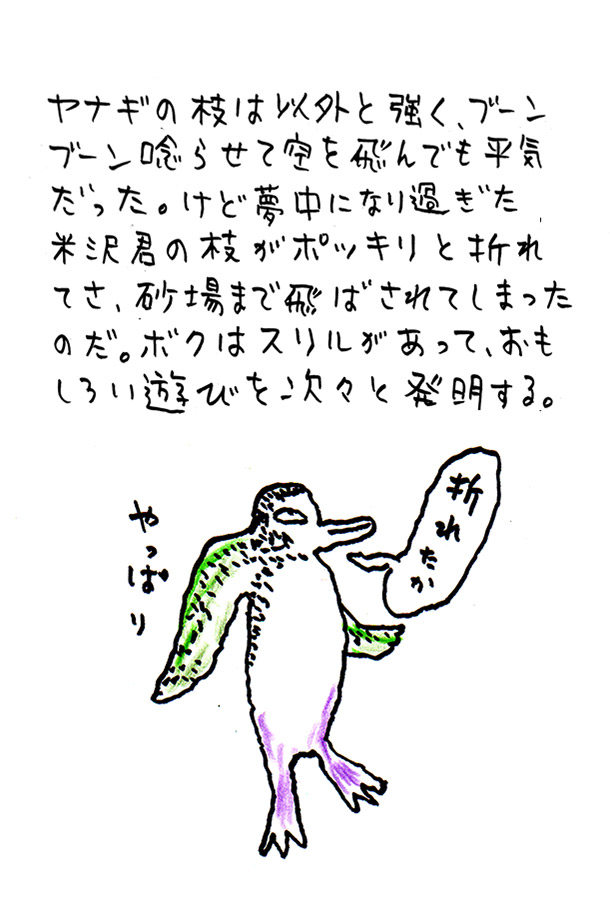 ヤナギの枝は以外と強く、ブーン
ブーン唸らせて空を飛んでも平気
だった。けど夢中になり過ぎた
米沢君の枝がポッキリと折れ
てさ、砂場まで飛ばされてしまった
のだ。ボクはスリルがあって、おも
しろい遊びを次々と発明する。
折れたか
やっぱり